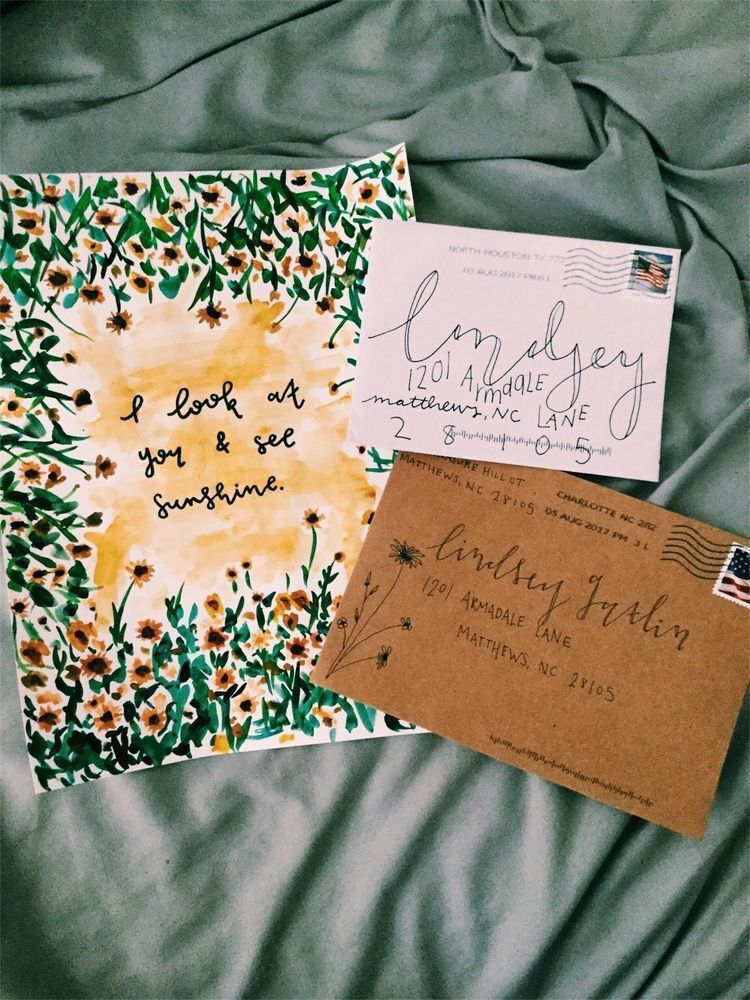 I look at
you & see
sunshine.
NORTH HOUSTON TX 773
03 AUG 2017 PM 6 L
Lindsey
1201 Armdale
LANE
matthews, NC
28105
HILL CT
MATTHEWS, NC 28105
CHARLOTTE NC 282
05 AUG 2017 PM 3 L
lindsey gatlin
1201 ARMADALE LANE
MATTHEWS, NC 28105